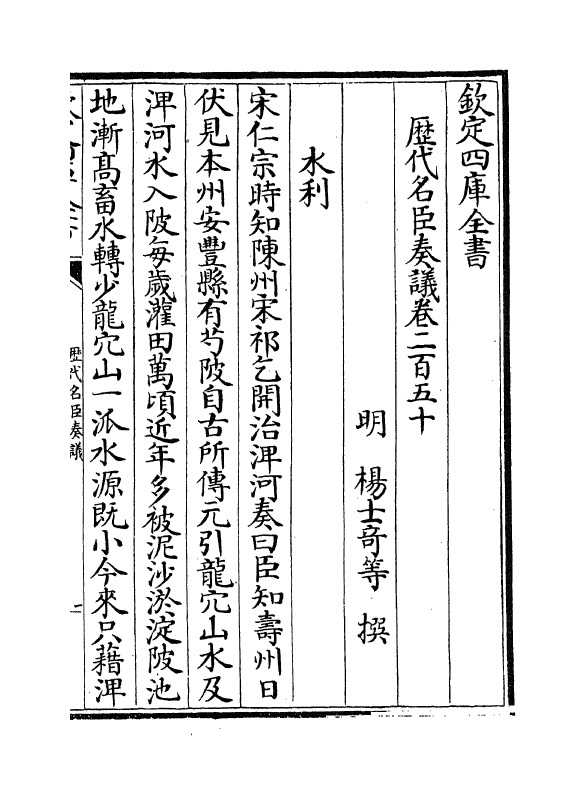 欽定四庫全書
歴代名臣奏議卷二百五十
明 楊士竒等 撰
水利
宋仁宗時知陳州宋祁乞開治淠河奏曰臣知壽州日
伏見本州安豐縣有芍陂自古所傳元引龍穴山水及
淠河水入陂每歲灌田萬頃近年多被泥沙淤淀陂池
地漸髙畜水轉少龍穴山一派水源既小今來只藉淠
歴代名臣奏議
一